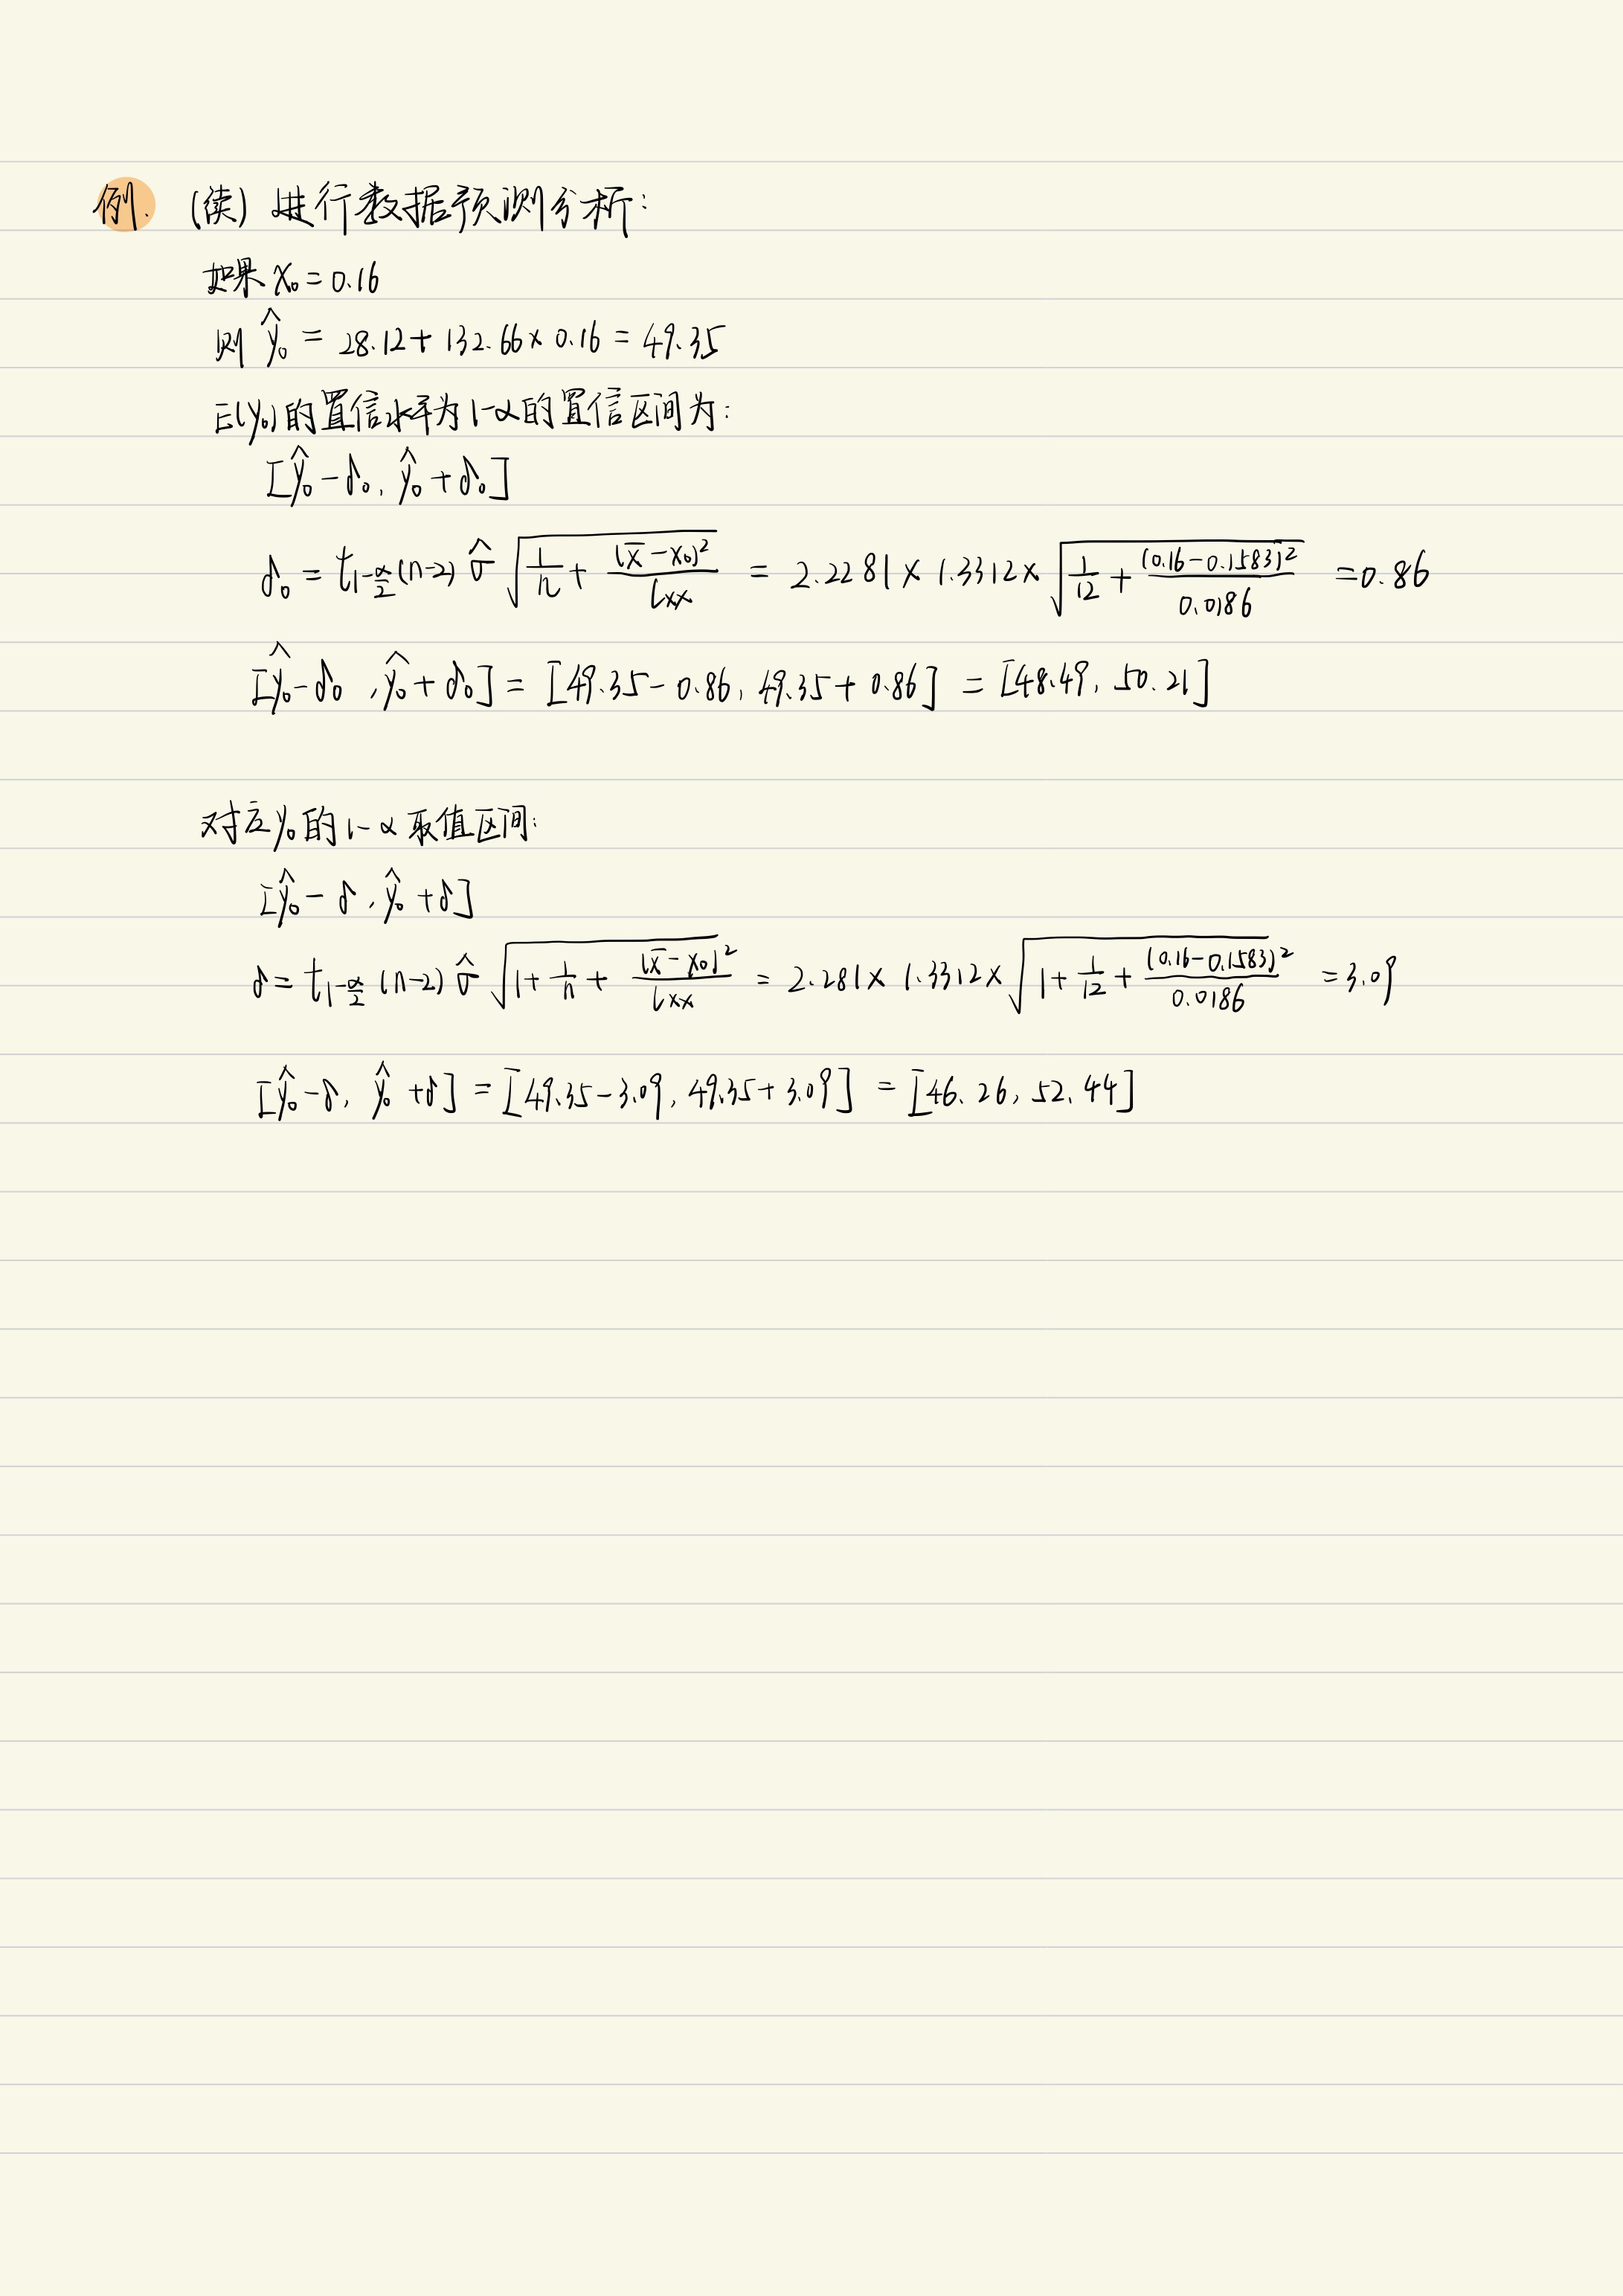 例. (续) 进行数据预测分析:
如果 x₀ = 0.16
则 ŷ₀ = 28.12 + 132.66 × 0.16 = 49.35
E(y₀) 的置信水平为 1-α 的置信区间为:
[ŷ₀ - δ₀, ŷ₀ + δ₀]
δ₀ = t_{1-α/2}(n-2) σ̂ √(1/n + (x̄ - x₀)²/lxx) = 2.2281 × 1.3312 × √(1/12 + (0.16 - 0.1583)²/0.0186) = 0.86
[ŷ₀ - δ₀, ŷ₀ + δ₀] = [49.35 - 0.86, 49.35 + 0.86] = [48.49, 50.21]
对应 y₀ 的 1-α 取值区间:
[ŷ₀ - δ, ŷ₀ + δ]
δ = t_{1-α/2}(n-2) σ̂ √(1 + 1/n + (x̄ - x₀)²/lxx) = 2.281 × 1.3312 × √(1 + 1/12 + (0.16 - 0.1583)²/0.0186) = 3.09
[ŷ₀ - δ, ŷ₀ + δ] = [49.35 - 3.09, 49.35 + 3.09] = [46.26, 52.44]